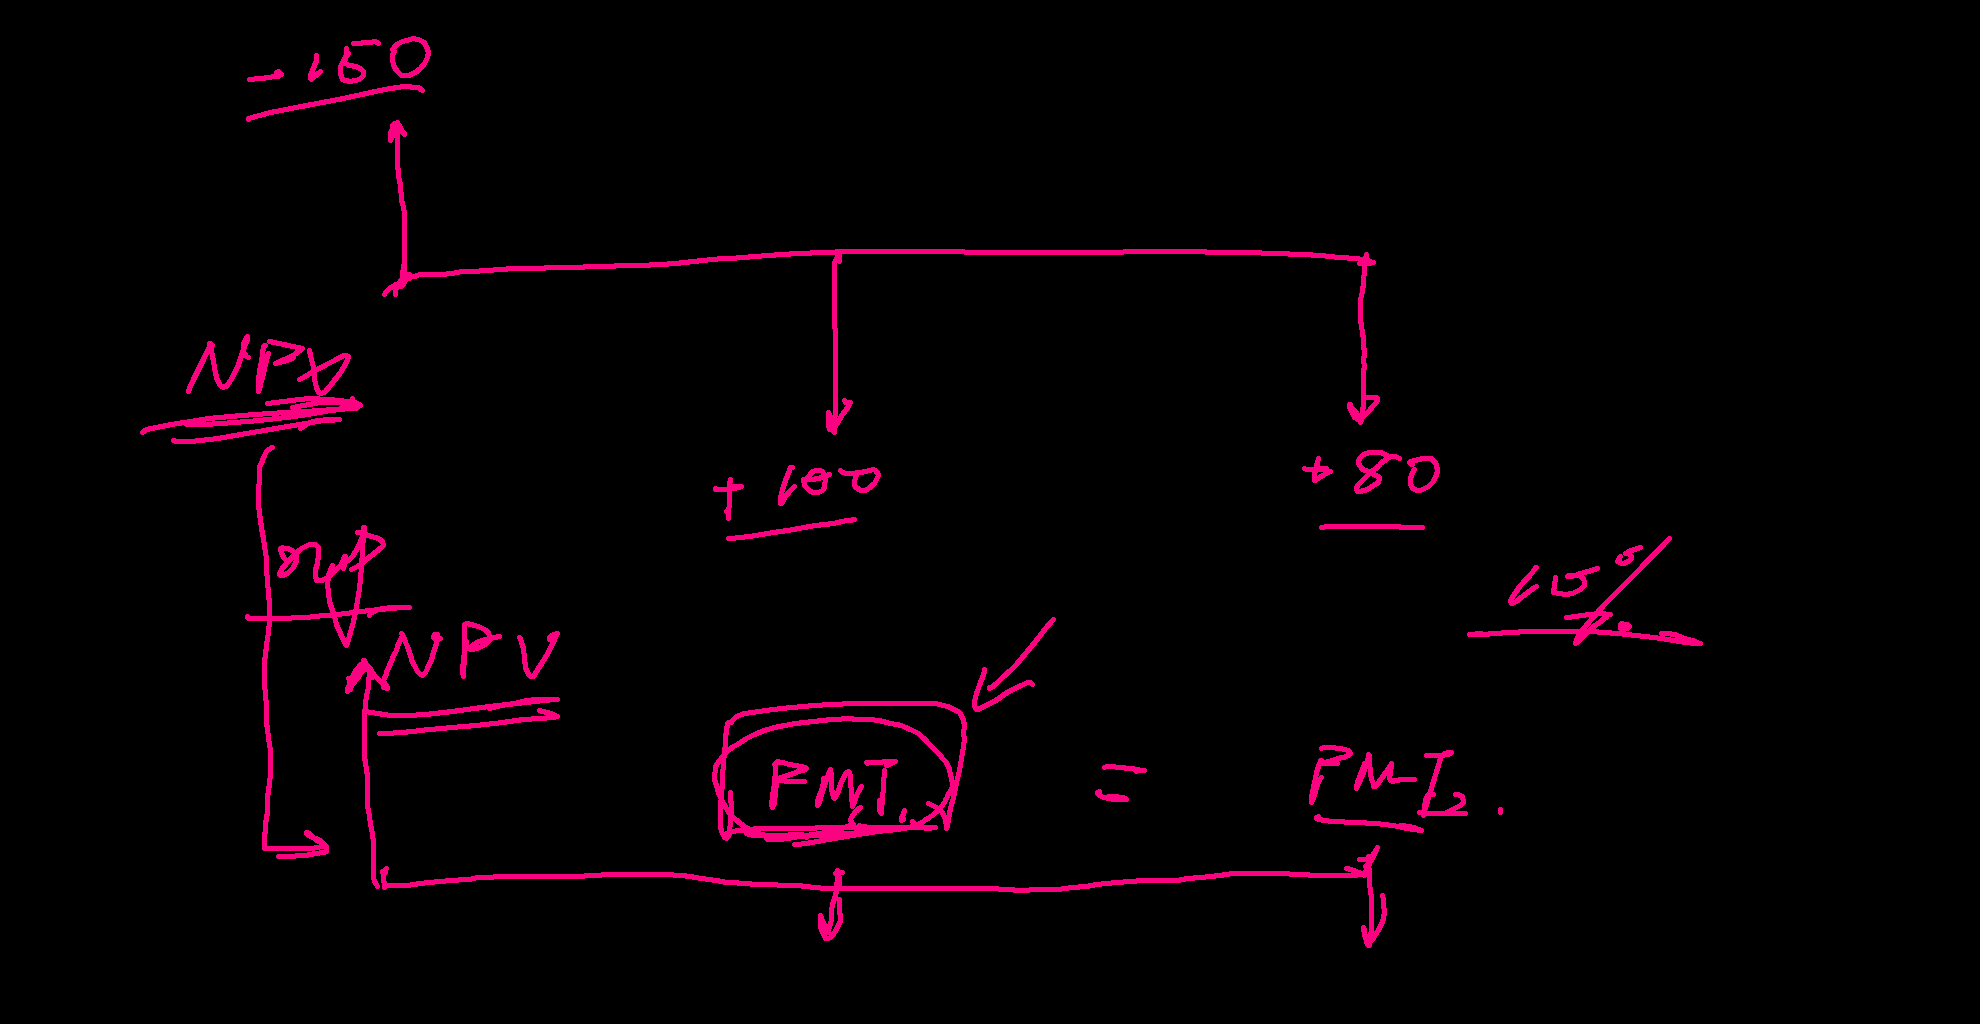 -150
NPV
+ 100
+ 80
10%
NPV
PMT₁ = PMT₂.